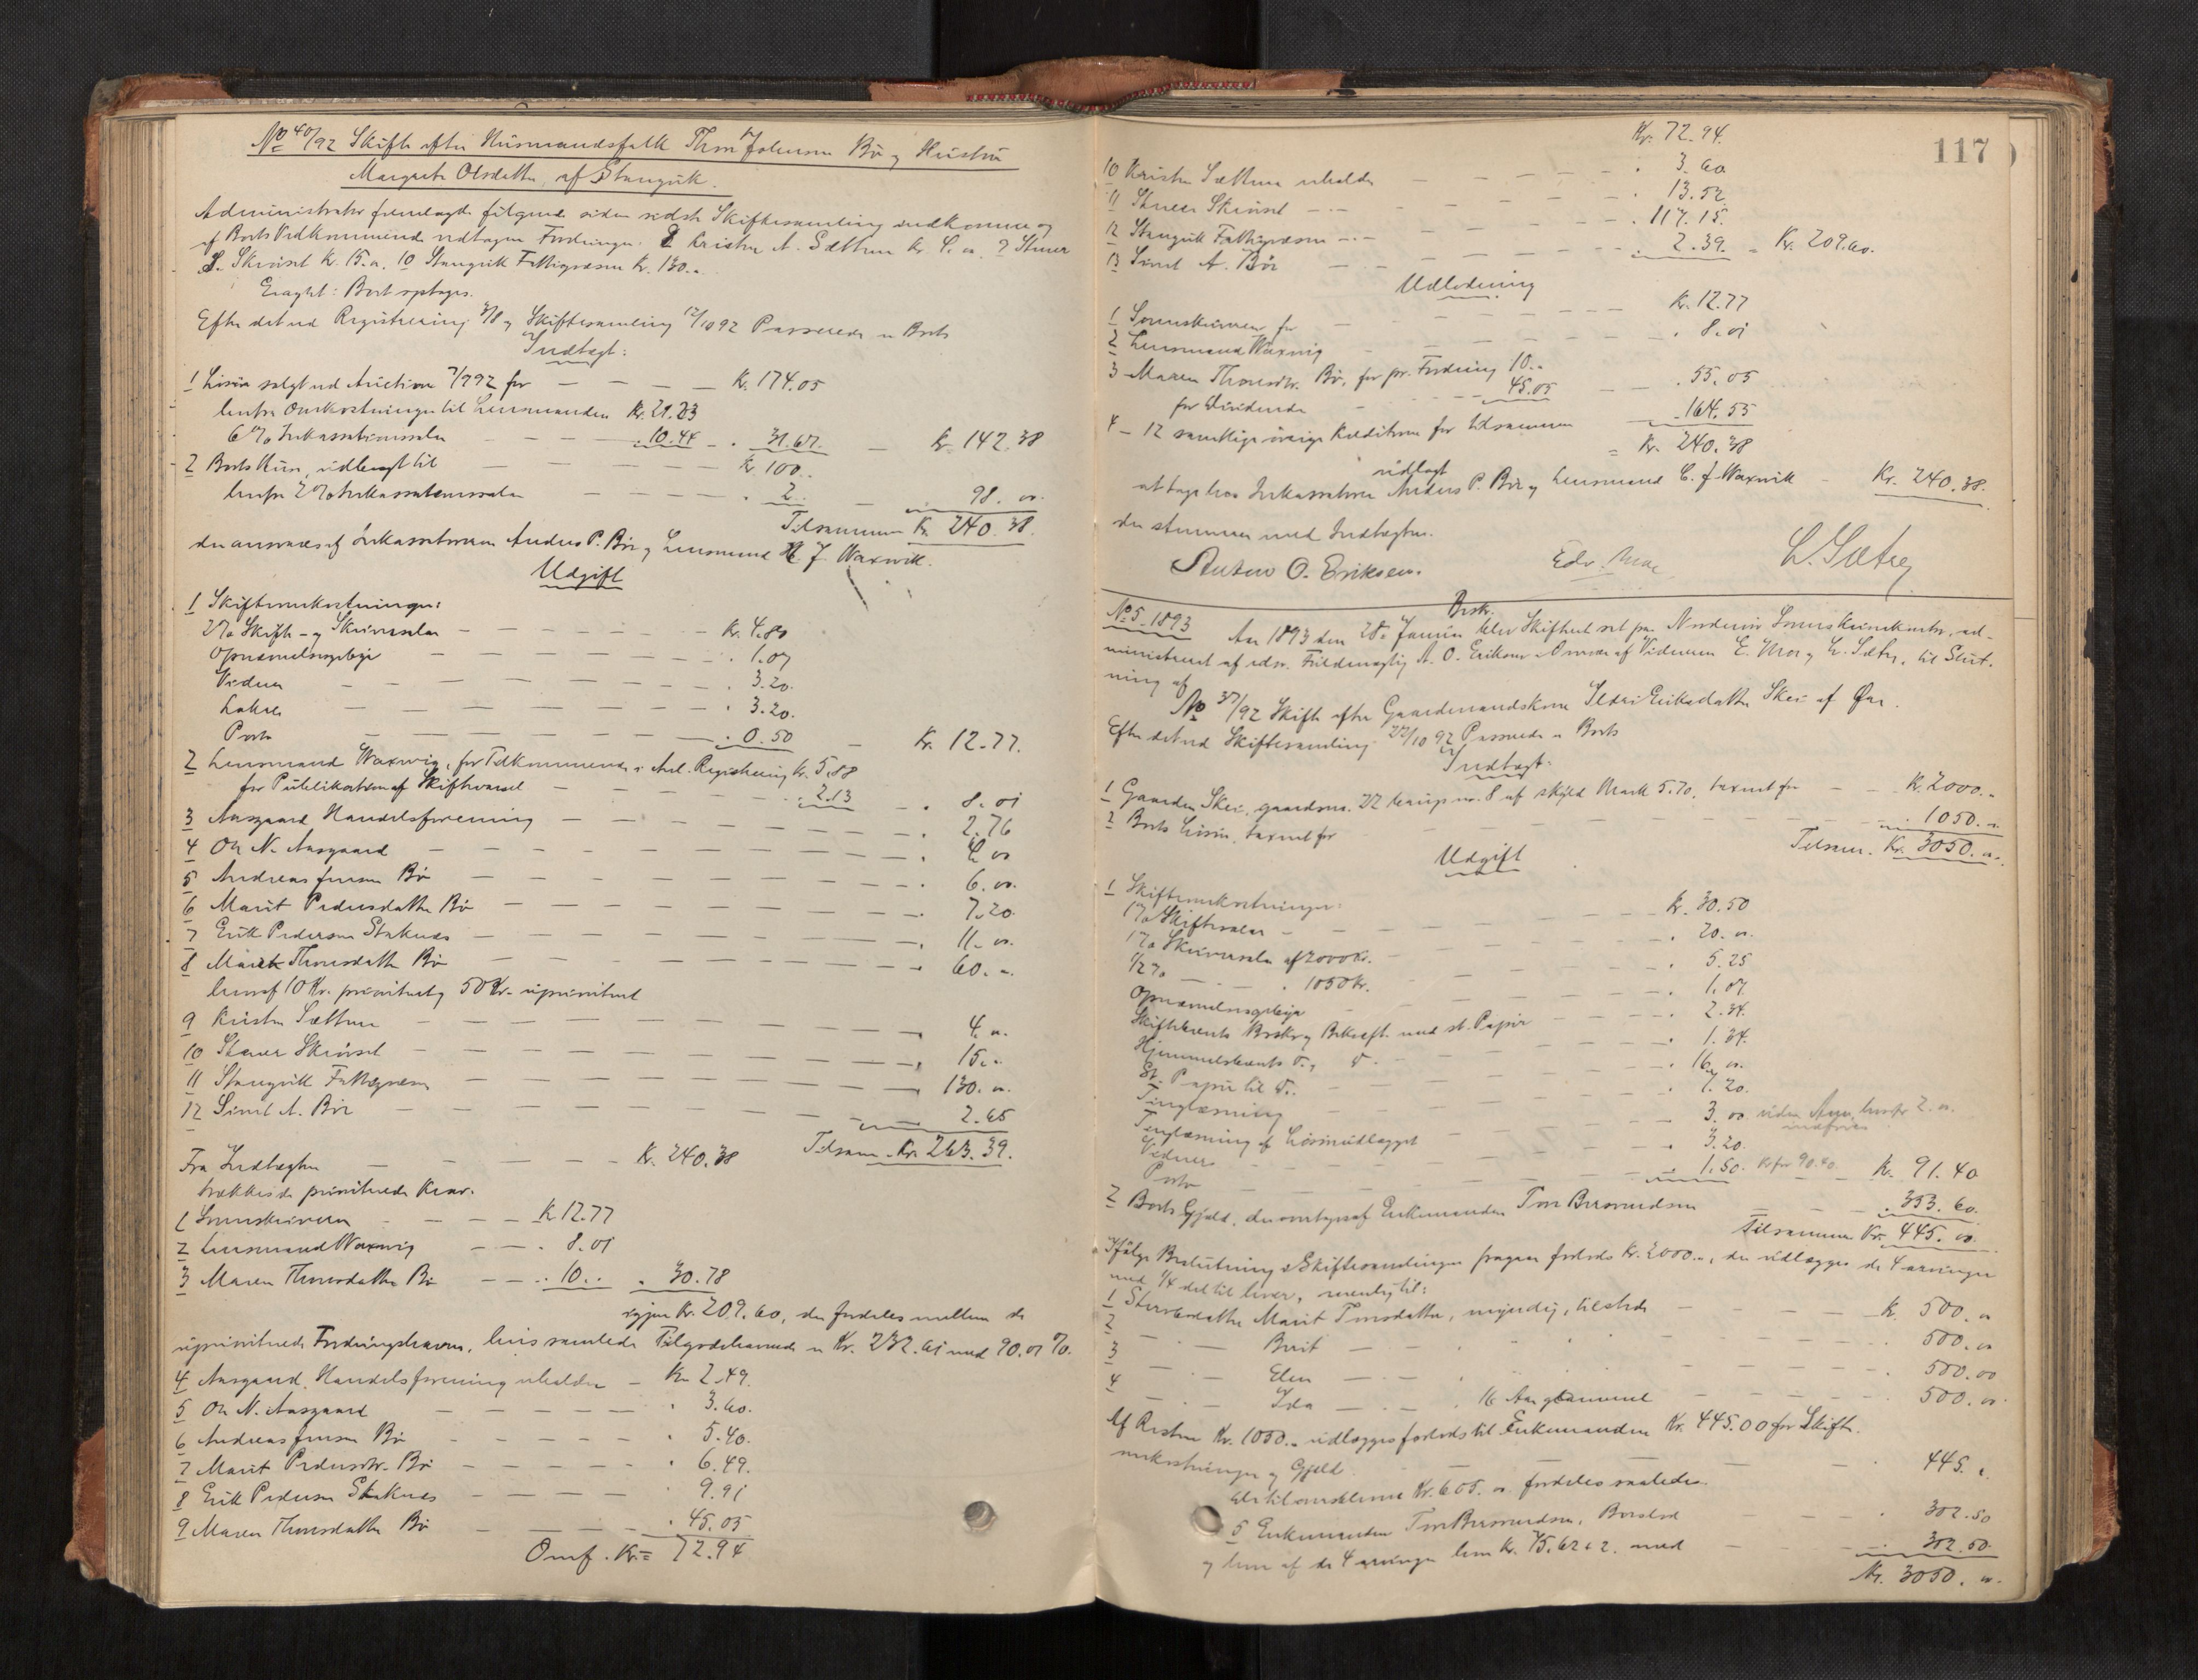 No 40/92 Skifte efter Husmandsfolk Thore Johnsen Bø og Hustru
Margrete Olsdatter af Stangvik.
Administrator fremlagde følgende siden sidste Skiftesamling indkomne og
af Boets Vedkommende vedtagne Fordringer: Kristen A. Sættem Kr. 4. 00, 9 Stener
S. Skrøvset Kr. 15. 00, 10 Stangvik Fattigvæsen Kr. 130. -
Eragtet: Boet optages.
Efter det ved Registrering 3/8 og Skiftesamling 12/10 92 Passerede er Boets
Indtægt:
1 Løsøre solgt ved Auction 7/9 92 for — — — — Kr. 174.05
herfra Omkostninger til Lensmanden Kr. 21.23
6 % Inkassationssalær — — — . 10.44 — . 31.67 — Kr. 142.38
2 Boets Huse, udbragt til — — — — Kr. 100. -
herfra 2 % Inkassationssalær — — — — . 2. - . 98. 00
Tilsammen Kr. 240. 38.
der ansvares af Inkassatoren Anders P. Bø og Lensmand H. J. Waxvik.
Udgift
1 Skifteomkostninger:
2 % Skifte- og Skriversalær — — — — Kr. 4.80
Opnævnelsesgebyr — — — — . 1.07
Vidner — — — — . 3.20.
Lokale — — — — . 3.20.
Porto — — — — . 0.50 — Kr. 12.77.
2 Lensmand Waxvig, for Tilkommende i Anl. Registrering Kr. 5.88
for Publikation af Skiftevarsel — . 2.13 — . 8. 01
3 Aasgaard Handelsforening — — — — . 2.76
4 Ole N. Aasgaard — — — — . 4. 00
5 Andreas Jensen Bø — — — — . 6. 00.
6 Marit Pedersdatter Bø — — — — . 7.20.
7 Erik Pedersen Staknes — — — — . 11. 00.
8 Maren Thoresdatter Bø — — — — . 60. -
heraf 10 Kr. prioriteret og 50 Kr. uprioriteret
9 Kristen Sættem — — — — . 4. 00.
10 Stener Skrøvset — — — — . 15. -
11 Stangvik Fattigvæsen — — — — . 130. 00.
12 Sivert A. Bø — — — — . 2.65
Tilsam. Kr. 263. 39.
Fra Indtægten — — — — Kr. 240.38
trækkes de prioriterede Krav:
1 Sorenskriveren — — — Kr. 12.77
2 Lensmand Waxvig — — . 8.01
3 Maren Thoresdatter Bø — — . 10. - . 30.78
igjen Kr. 209.60, der fordeles mellem de
uprioriterede Fordringshavere, hvis samlede Tilgodehavende er Kr. 232.61 med 90.01 %.
4 Aasgaard Handelsforening erholder — Kr. 2.49.
5 Ole N. Aasgaard — — — — . 3.60.
6 Andreas Jensen Bø — — — — . 5.40.
7 Marit Pedersdtr. Bø — — — — . 6.49.
8 Erik Pedersen Staknes — — — — . 9.91
9 Maren Thoresdatter Bø — — — — . 45.05
Omf. Kr. = 72.94
117
Kr. 72.94.
10 Kristen Sættem erholder — — — — . 3.60
11 Stener Skrøvset — — — . 13.52
12 Stangvik Fattigvæsen — — — . 117.15.
13 Sivert A. Bø — — — . 2.39. = Kr. 209.60.
Udlodning
1 Sorenskriveren for — — — — Kr. 12.77
2 Lensmand Waxvig — — — — . 8.01
3 Maren Thoresdtr. Bø, for pr. Fordring 10. -
for Dividende — — — 45.05 — . 55.05
4 - 12 samtlige øvrige Kreditorer for tilsammen . 164.55
= Kr. 240.38
udlagt
at tage hos Inkassatoren Anders P. Bø og Lensmand C. J. Waxvik — Kr. 240.38.
der stemmer med Indtægten.
Anton O. Eriksen. Edv. Moe L. Sætre
No 5. 1893 Aar 1893 den 28. Januar blev Skifteret sat paa Nordmør Sorenskriverkontor, ad-
ministreret af edsv. Fuldmægtig A. O. Eriksen i Overvær af Vidnerne E. Moe og L. Sætre, til Slut-
ning af
No 37/92 Skifte efter Gaardmandskone Sildri Eriksdatter Skei af Øre.
Efter det ved Skiftesamling 22/10 92 Passerede er Boets
Indtægt:
1 Gaarden Skei, gaardsno. 22 brugsno. 8 af skyld Mark 5.70, taxeret for — — Kr. 2000. -
2 Boets Løsøre, taxeret for — — — — . 1050. -
Tilsam. Kr. 3050. 00.
Udgift
1 Skifteomkostninger:
1 % Skiftesalær — — — — Kr. 30.50
1 % Skriversalær af 2000 Kr. — — — . 20. 00.
1/2 % — . 1050 Kr. — — — . 5.25
Opnævnelsesgebyr — — — . 1.07.
Skiftebrevets Beskr. og Bekræft. med st. Papir — — . 2.34.
Hjemmelsbrevets d., d. — — — . 1.34.
St. Papir til d. — — — . 16. 00.
Tinglæsning — — — . 7.20.
Tinglæsning af Løsøreudlægget — — — . 3. 00
Vidner — — — . 3.20.
Porto — — — . 1.50. Kr. 91.40
2 Boets Gjeld, der overtages af Enkemanden Tore Bersvendsen — — . 353.60.
Tilsammen Kr. 445. 00.
Ifølge Beslutning i Skiftesamlingen fragaar forlods Kr. 2000. -, der udlægges de 4 arvinger
med 1/4 del til hver, nemlig til:
1 Stervbodatter Marit Toresdatter, myndig, tilstede — — Kr. 500. 00
2 — — Berit — — . 500. 00
3 — — Elen — — . 500.00
4 — — Ida — — 16 Aar gammel — — . 500. 00.
Af Resten Kr. 1050. - udlægges forlods til Enkemanden Kr. 445.00 for Skifte-
omkostninger og Gjeld — — — . 445. -
Kr. 605. 00 fordeles saaledes.
5 Enkemanden Tore Bersvendsen, Boslod — — . 302.50
og hver af de 4 arvinger hver Kr. 75.62 1/2. med — — . 302.50.
Kr. 3050. 00.